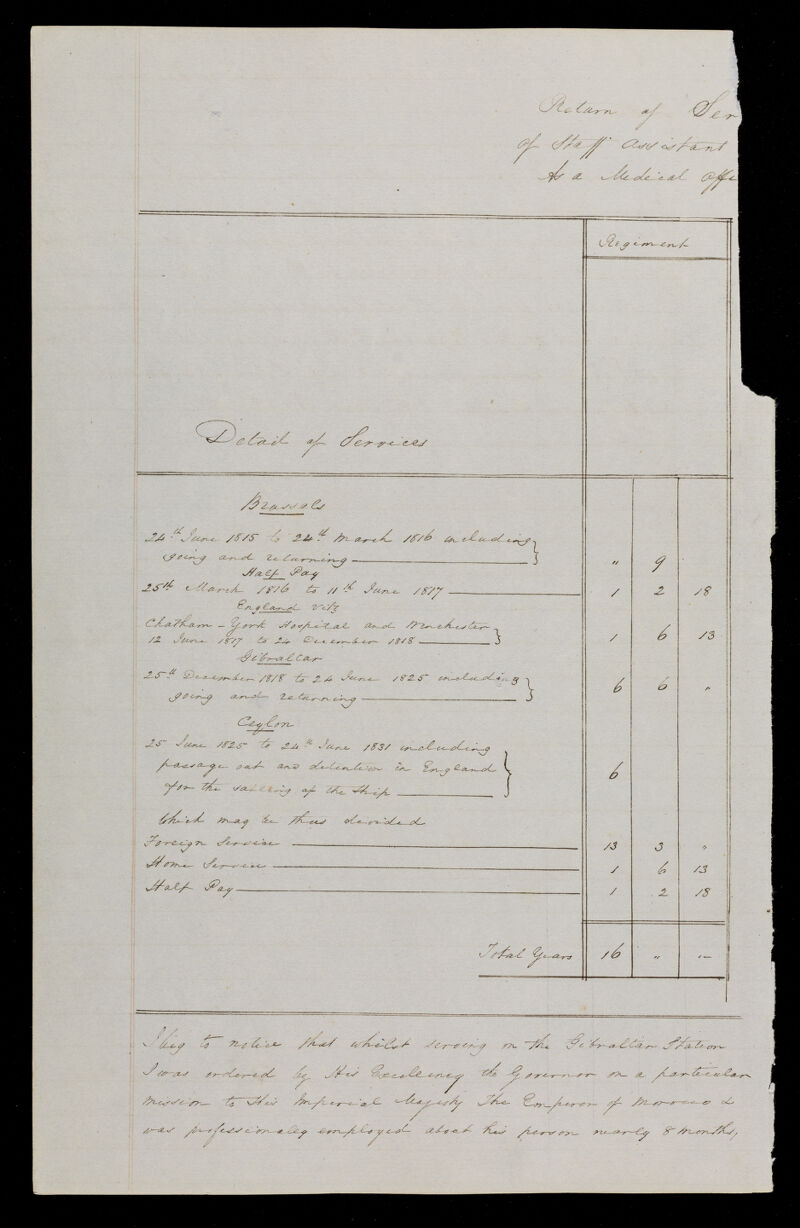 Return of Ser
of Staff Assistant
As a Medical Offi
Regiment
Detail of Services
Brussels
24th June 1815 to 24th March 1816 including
going and returning — " 9
Half Pay
25th March 1816 to 11th June 1817 — 1 2 18
England Viz
Chatham - York Hospital and Winchester
12 June 1817 to 24 December 1818 — 1 6 13
Gibraltar
25th December 1818 to 24 June 1825 including
going and returning — 6 6 "
Ceylon
25 June 1825 to 24th June 1831 including
passage out and detention in England
for the sailing of the Ship — 6
Which may be thus devided
Foreign Service — 13 3 "
Home Service — 1 6 13
Half Pay — 1 2 18
Total Years 16 " "
I beg to notice that whilst serving on the Gibraltar Station
I was ordered by His Excellency the Governor on a particular
mission to His Imperial Majesty The Emperor of Morocco &
was professionaley employed about his person nearly 8 months,